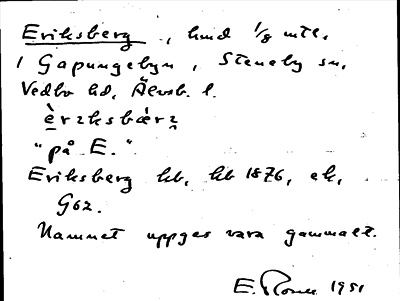 Eriksberg, hmd 1/8 mtl.
i Gapungebyn, Steneby sn,
Vedbo hd, Älvsb. l.
èrɪksbærɪ
"på E."
Eriksberg hb, hb 1876, ek,
G62.
Namnet uppges vara gammalt.
E. 1951